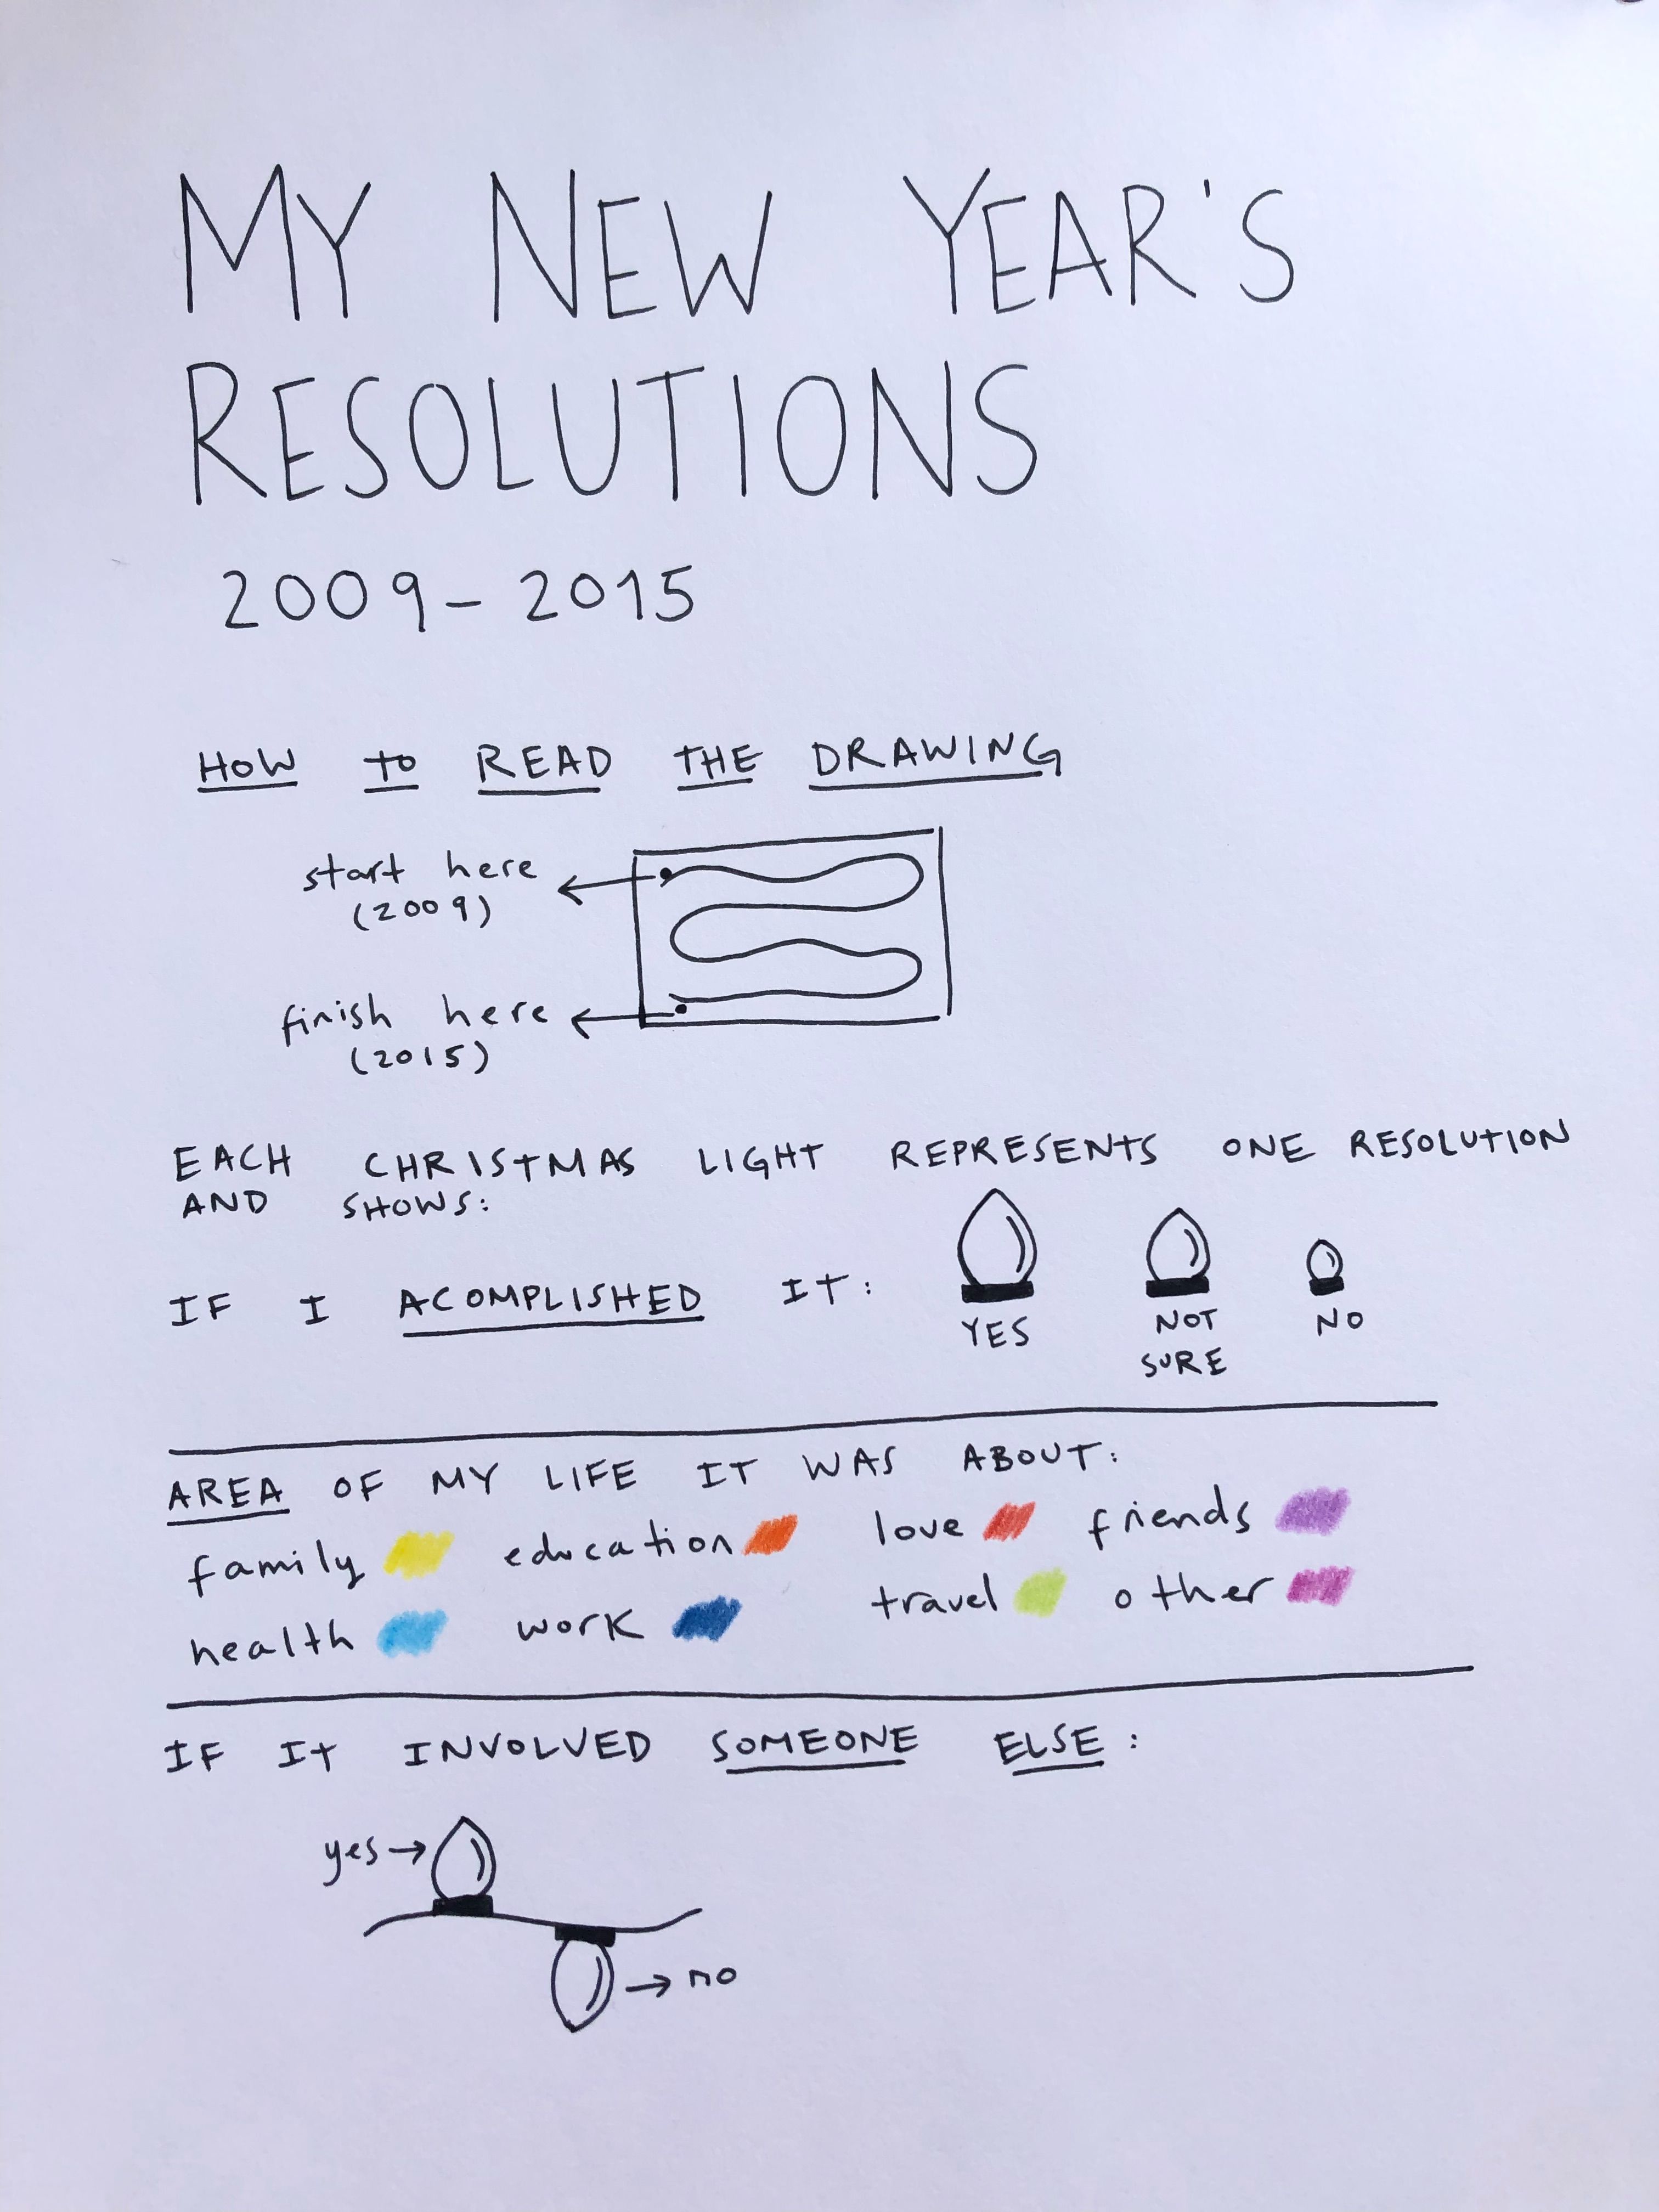 MY NEW YEAR'S
RESOLUTIONS
2009-2015
HOW to READ THE DRAWING
start here
(2009)
finish here
(2015)
EACH CHRISTMAS LIGHT REPRESENTS ONE RESOLUTION
AND SHOWS:
IF I ACOMPLISHED IT:
YES
NOT
SURE
NO
AREA OF MY LIFE IT WAS ABOUT:
family education love friends
health work travel other
IF It INVOLVED SOMEONE ELSE:
yes
no